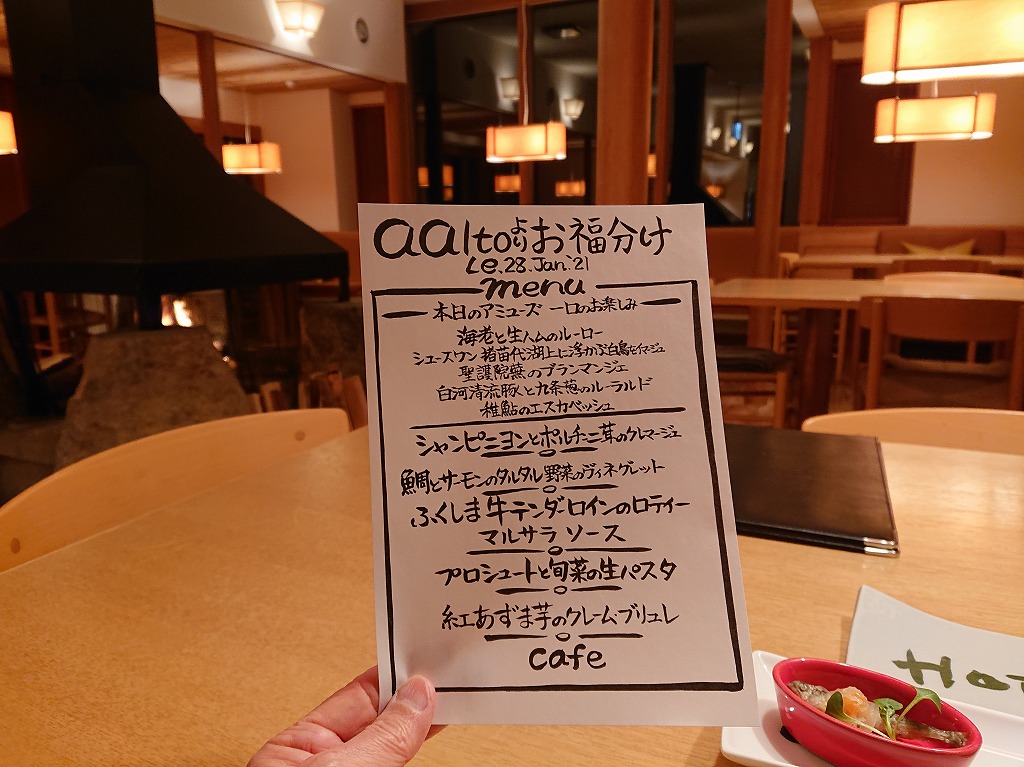 aaltoよりお福分け
Le.28.Jan.'21
menu
本日のアミューズ 一口のお楽しみ
海老と生ハムのルーロー
シュースワン 猪苗代湖上に浮かぶ白鳥をイマージュ
聖護院蕪のブランマンジェ
白河清流豚と九条葱のルーラルド
稚鮎のエスカベッシュ
シャンピニヨンとポルチーニ茸のクレマージュ
鯛とサーモンのタルタル 野菜のヴィネグレット
ふくしま牛テンダーロインのロティー
マルサラ ソース
プロシュートと旬菜の生パスタ
紅あずま芋のクレームブリュレ
cafe